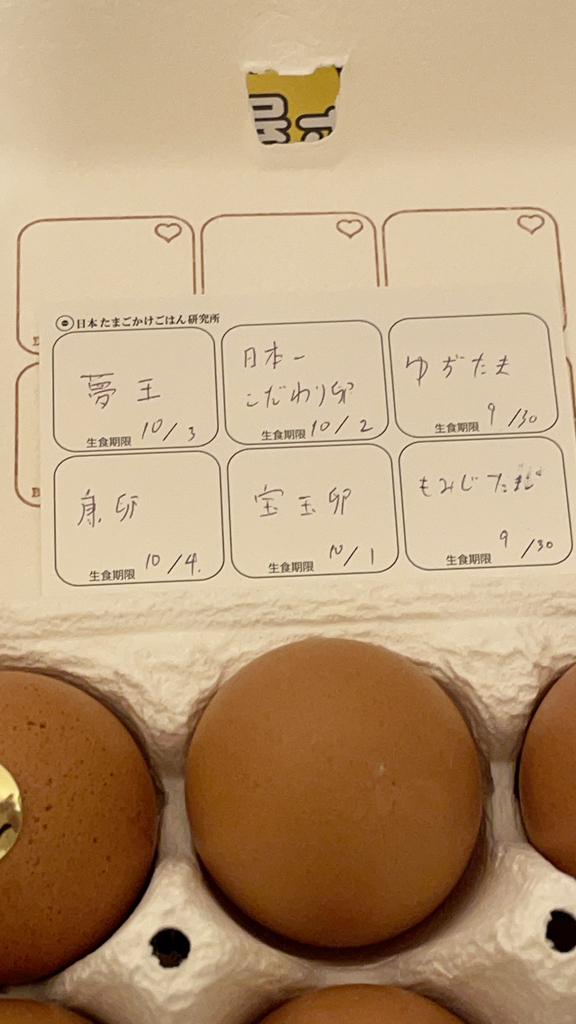 日本たまごかけごはん研究所
夢王
生食期限 10/3
日本一
こだわり卵
生食期限 10/2
ゆずたま
生食期限 9/30
康卵
生食期限 10/4.
宝玉卵
生食期限 10/1
もみじたまご
生食期限 9/30